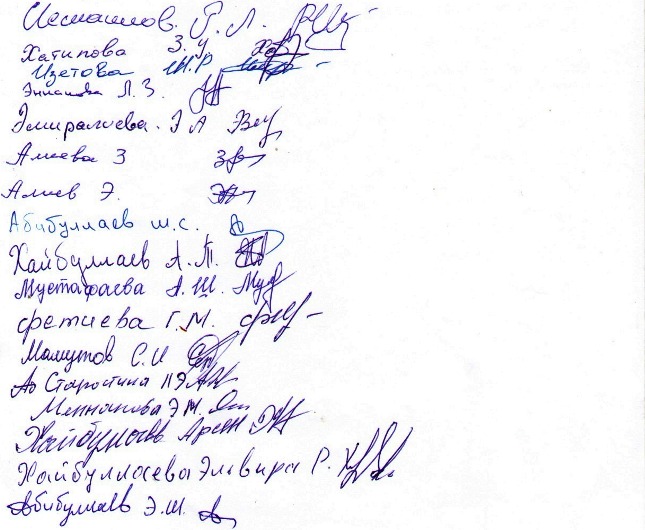 Исмаилов Р. Л.
Хатипова З. У
Изетова Ш.Р
Л. З.
Эмиралиева. Э А
Алиева З
Алиев Э.
Абибуллаев ш.с.
Хайбуллаев А. Т.
Мустафаева А. Ш.
Фетиева Г. М.
Мамутов С. И
Старостина
Меннанова Э М.
Хайбуллаев Арсен
Хайбуллаева Эльвира Р.
Абибуллаев Э.Ш.